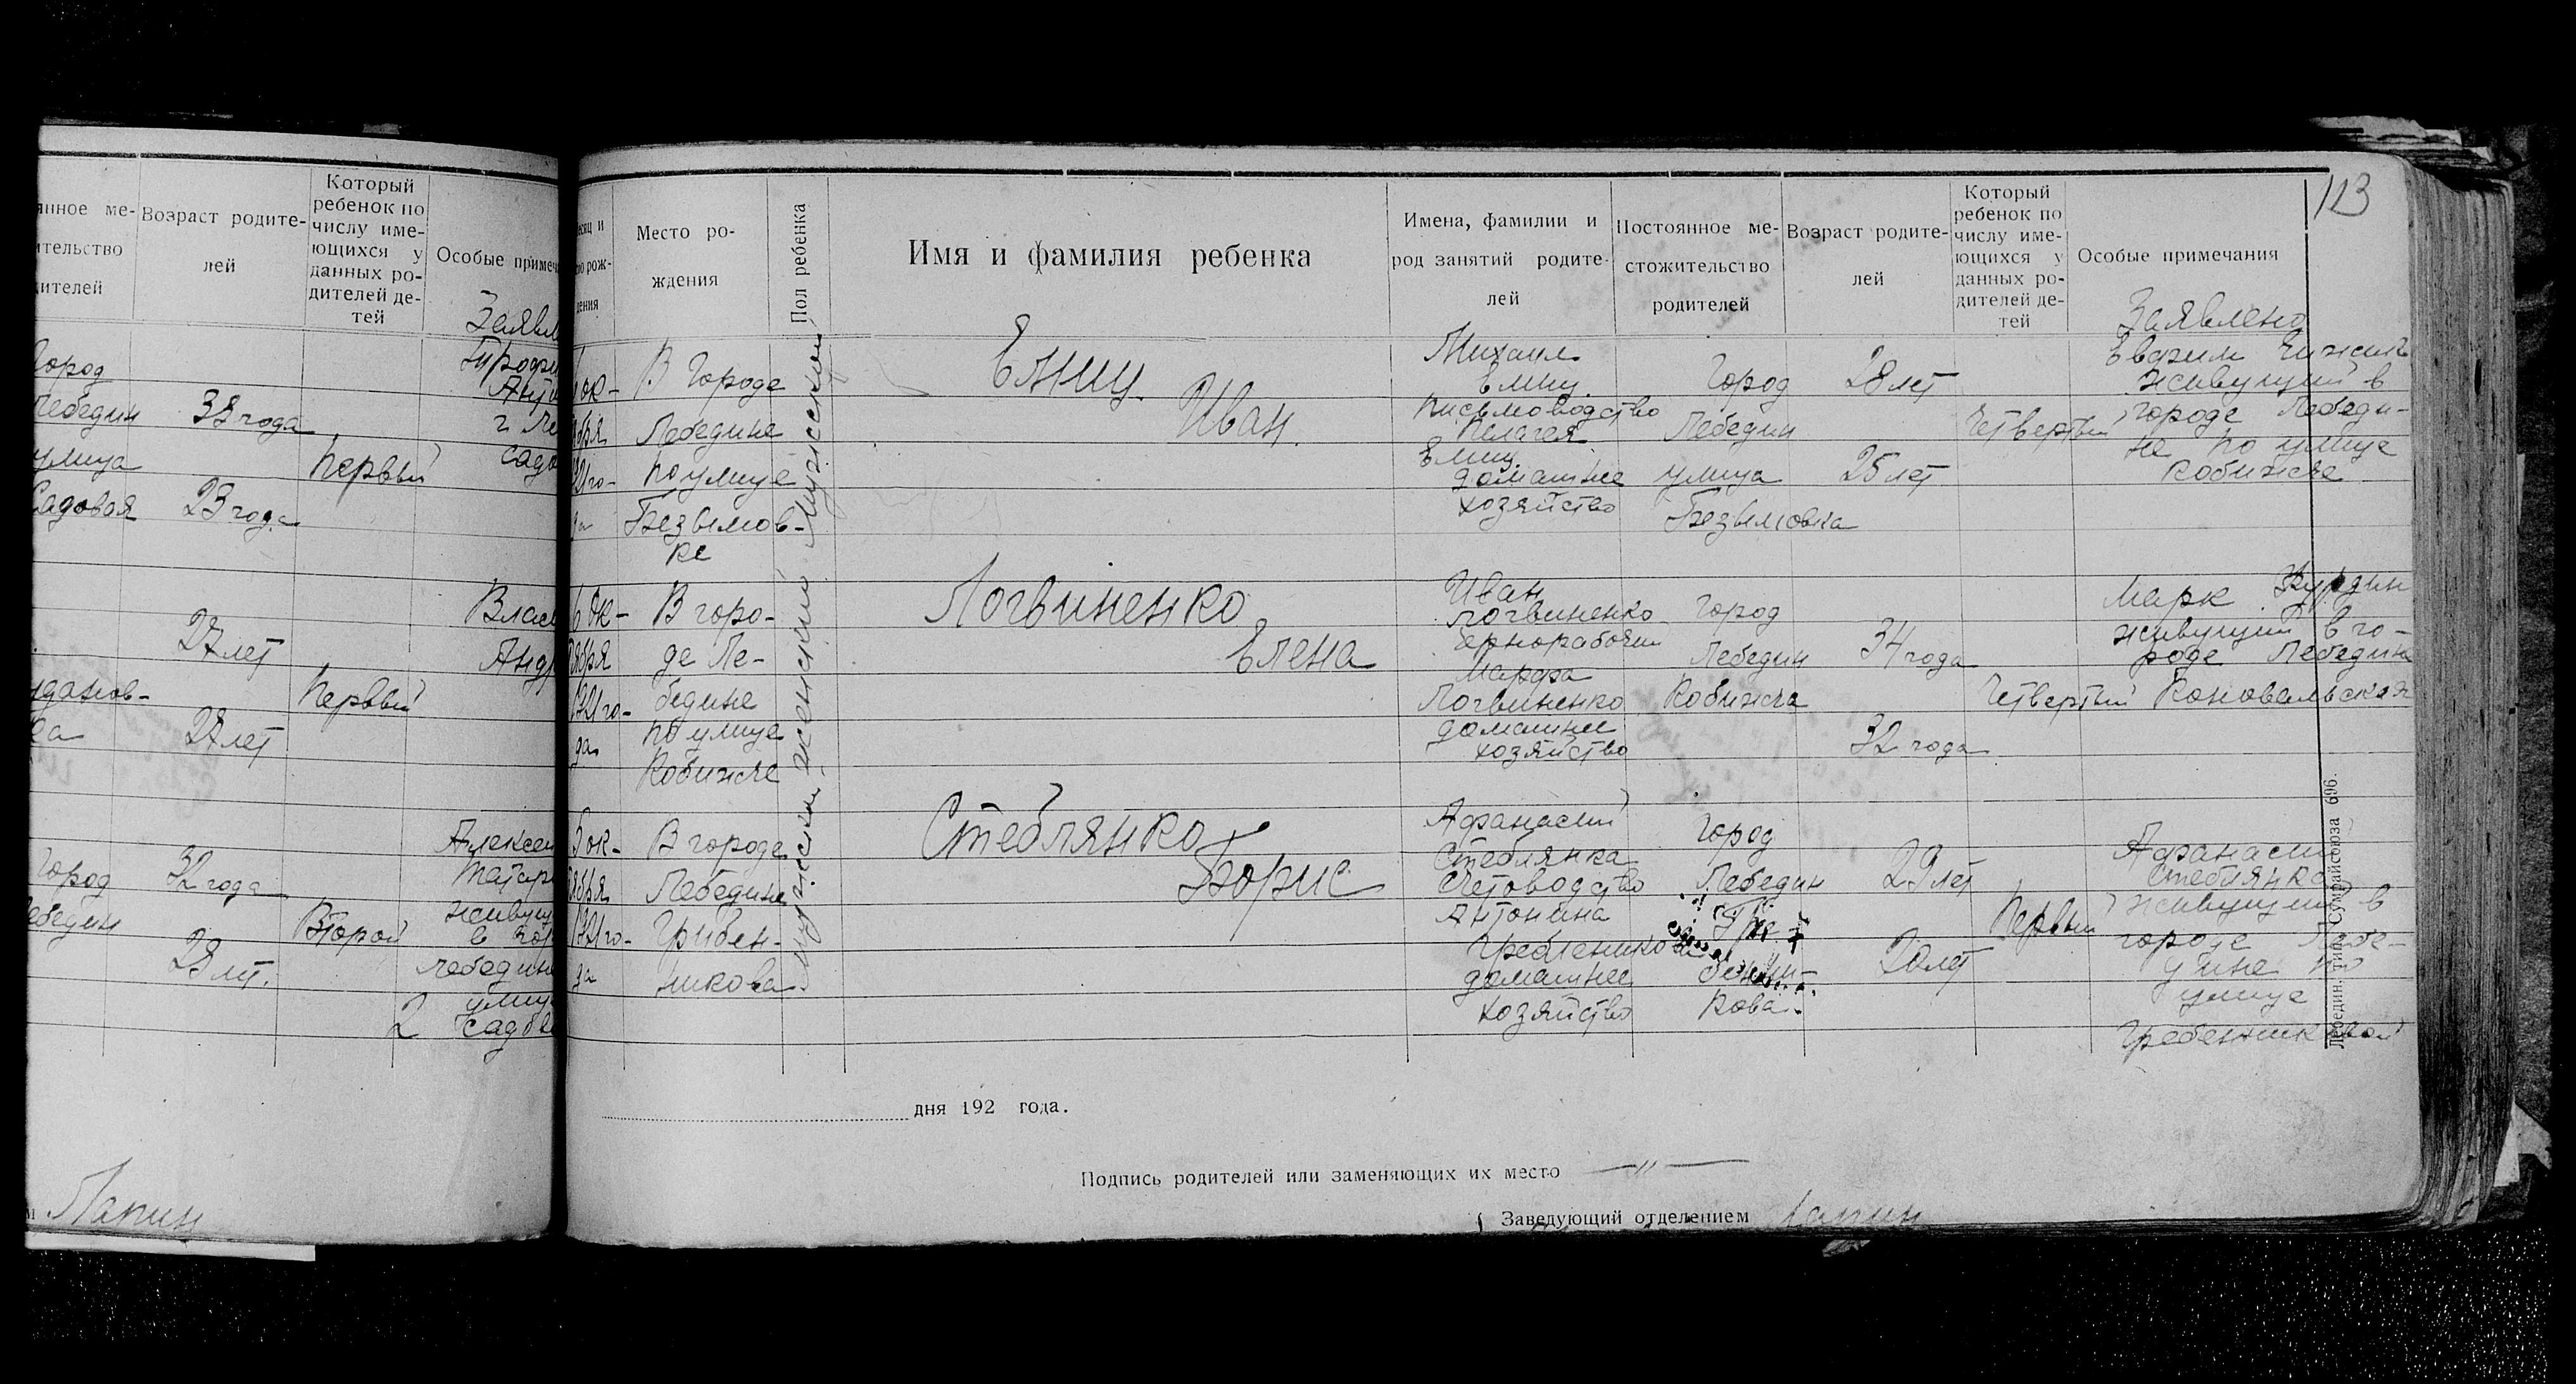 113
Возраст родите-
лей
Который
ребенок по
числу име-
ющихся у
данных ро-
дителей де-
тей
Город
Лебедин
улица
Садовая
38 года
23 года
Первый
27 лет
27 лет
Первый
Город
Лебедин
32 года
28 лет.
Второй
Лапин
Место ро-
ждения
Пол ребенка
Имя и фамилия ребенка
Имена, фамилии и
род занятий родите-
лей
Постоянное ме-
стожительство
родителей
Возраст родите-
лей
Который
ребенок по
числу име-
ющихся у
данных ро-
дителей де-
тей
Особые примечания
Заявлено
В городе
Лебедине
по улице
Безымов-
ке
Мужской
Емиц
Иван
Михаил
Емиц
письмоводство
Пелагея
Емиц
домашнее
хозяйство
Город
Лебедин
улица
Безымовка
28 лет
25 лет
Четвертый
живущий в
городе Лебеди-
не по улице
Кобижче
В горо-
де Ле-
бедине
по улице
Кобижче
женский
Логвиненко
Елена
Иван
Логвиненко
чернорабочий
Марфа
Логвиненко
домашнее
хозяйство
Город
Лебедин
Кобижча
34 года
32 года
Четвертый
Марк
живущий в го-
роде Лебедине
Коновальская
5 ок-
тября
1921 го-
да
В городе
Лебедине
Грибен-
никова
мужской
Стеблянко
Борис
Афанасий
Стеблянка
Счетоводство
Антонина
домашнее
хозяйство
город
Лебедин
Гре-
бенни-
кова.
29 лет
20 лет
Первый
Афанасий
Стеблянко
живущий в
городе Лебе-
дине по
улице
Гребенниковой
дня 192 года.
Подпись родителей или заменяющих их место —"—
Заведующий отделением Лапин
Лебедин. тип. Сумрайсоюза 696.